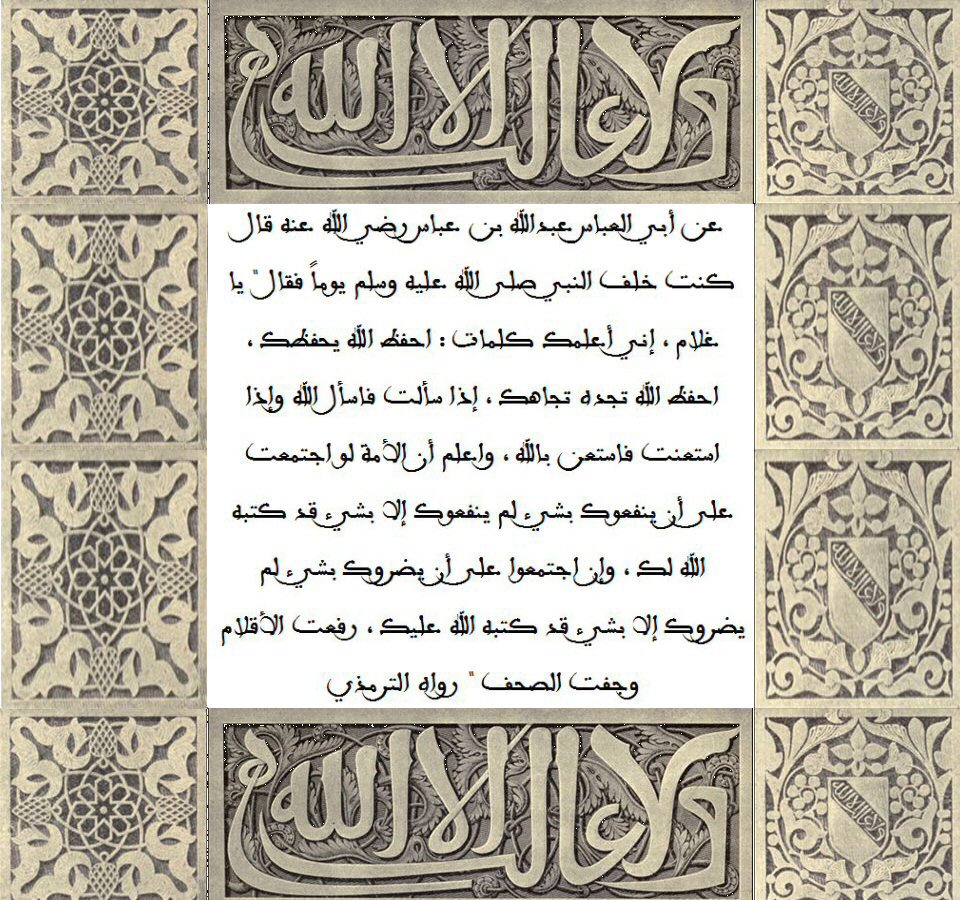 ولا غالب إلا الله
عن أبي العباس عبدالله بن عباس رضي الله عنه قال
كنت خلف النبي صلى الله عليه وسلم يوماً فقال " يا
غلام ، إني أعلمك كلمات : احفظ الله يحفظك ،
احفظ الله تجده تجاهك ، إذا سألت فاسأل الله وإذا
استعنت فاستعن بالله ، واعلم أن الأمة لو اجتمعت
على أن ينفعوك بشيء لم ينفعوك إلا بشيء قد كتبه
الله لك ، وإن اجتمعوا على أن يضروك بشيء لم
يضروك إلا بشيء قد كتبه الله عليك ، رفعت الأقلام
وجفت الصحف " رواه الترمذي
ولا غالب إلا الله